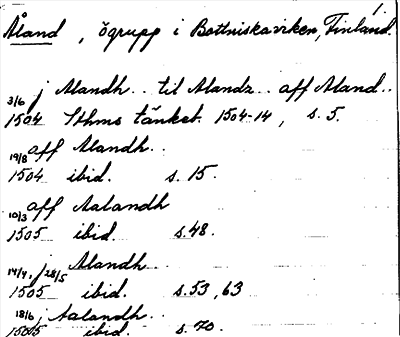 1.
Åland, ögrupp i Bottniskaviken, Finland.
j Alandh.. til Alandz.. aff Aland..
3/6
1504 Sthms tänkeb. 1504-14, s. 5.
aff Alandh..
19/8
1504 ibid. s. 15.
aff Aalandh
10/3
1505 ibid. s. 48.
j Alandh..
14/4, 28/5
1505 ibid. s. 53, 63
j Aalandh..
18/6
1505 ibid. s. 70.